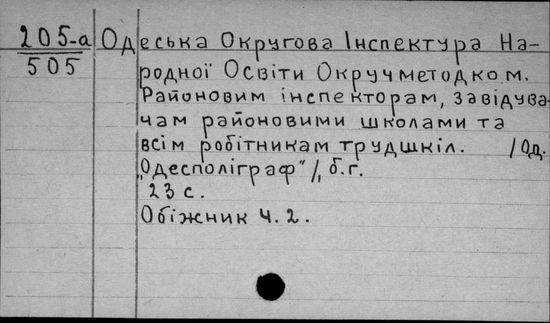 205-а
505
Одеська Округова Інспектура На-
родної Освіти Окручметодком.
Районовим інспекторам, завідува-
чам районовими школами та
всім робітникам трудшкіл. /Од.
„Одесполіграф"/, б.г.
23 с.
Обіжник ч. 2.